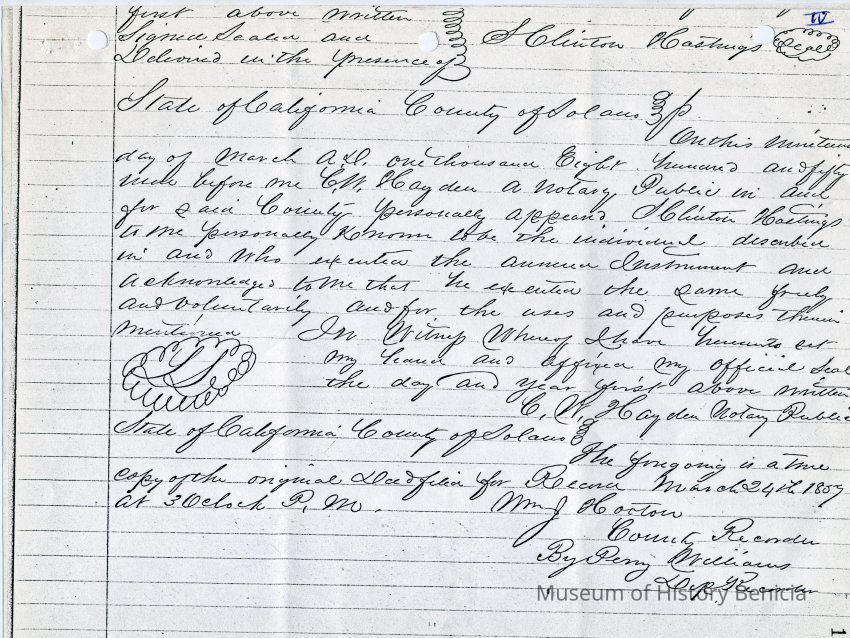 IV
first above written
Signed Sealed and
Delivered in the presence of
S Clinton Hastings Seal
State of California County of Solano
On this nineteenth
day of March A.D. one thousand Eight hundred and fifty
before me C. W. Hayden a Notary Public in and
for said County personally appeared S Clinton Hastings
to me personally Known to be the individual described
in and who executed the annexed Instrument and
acknowledged to me that he executed the same freely
and voluntarily and for the uses and purposes therein
mentioned In Witness Whereof I have hereunto set
L S my hand and affixed my official Seal
the day and year first above written
C. W. Hayden Notary Public
State of California County of Solano
The foregoing is a true
copy of the original Deed filed for Record March 24th
at 3 Oclock P. M. Wm J
County Recorder
By Perry Williams
Dep Recorder
Museum of History Benicia
1